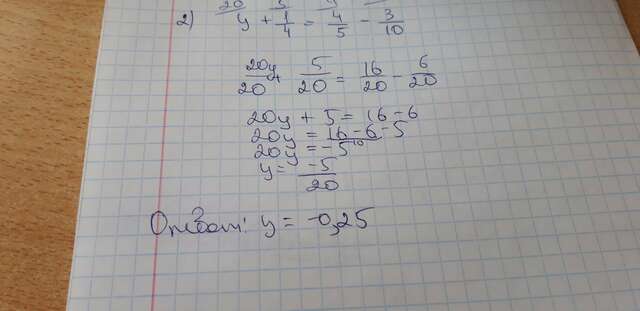 2) y + 1/4 = 4/5 - 3/10
20y/20 + 5/20 = 16/20 - 6/20
20y + 5 = 16 - 6
20y = 16 - 6 - 5
10
20y = -5
y = -5/20
Ответ: y = -0,25